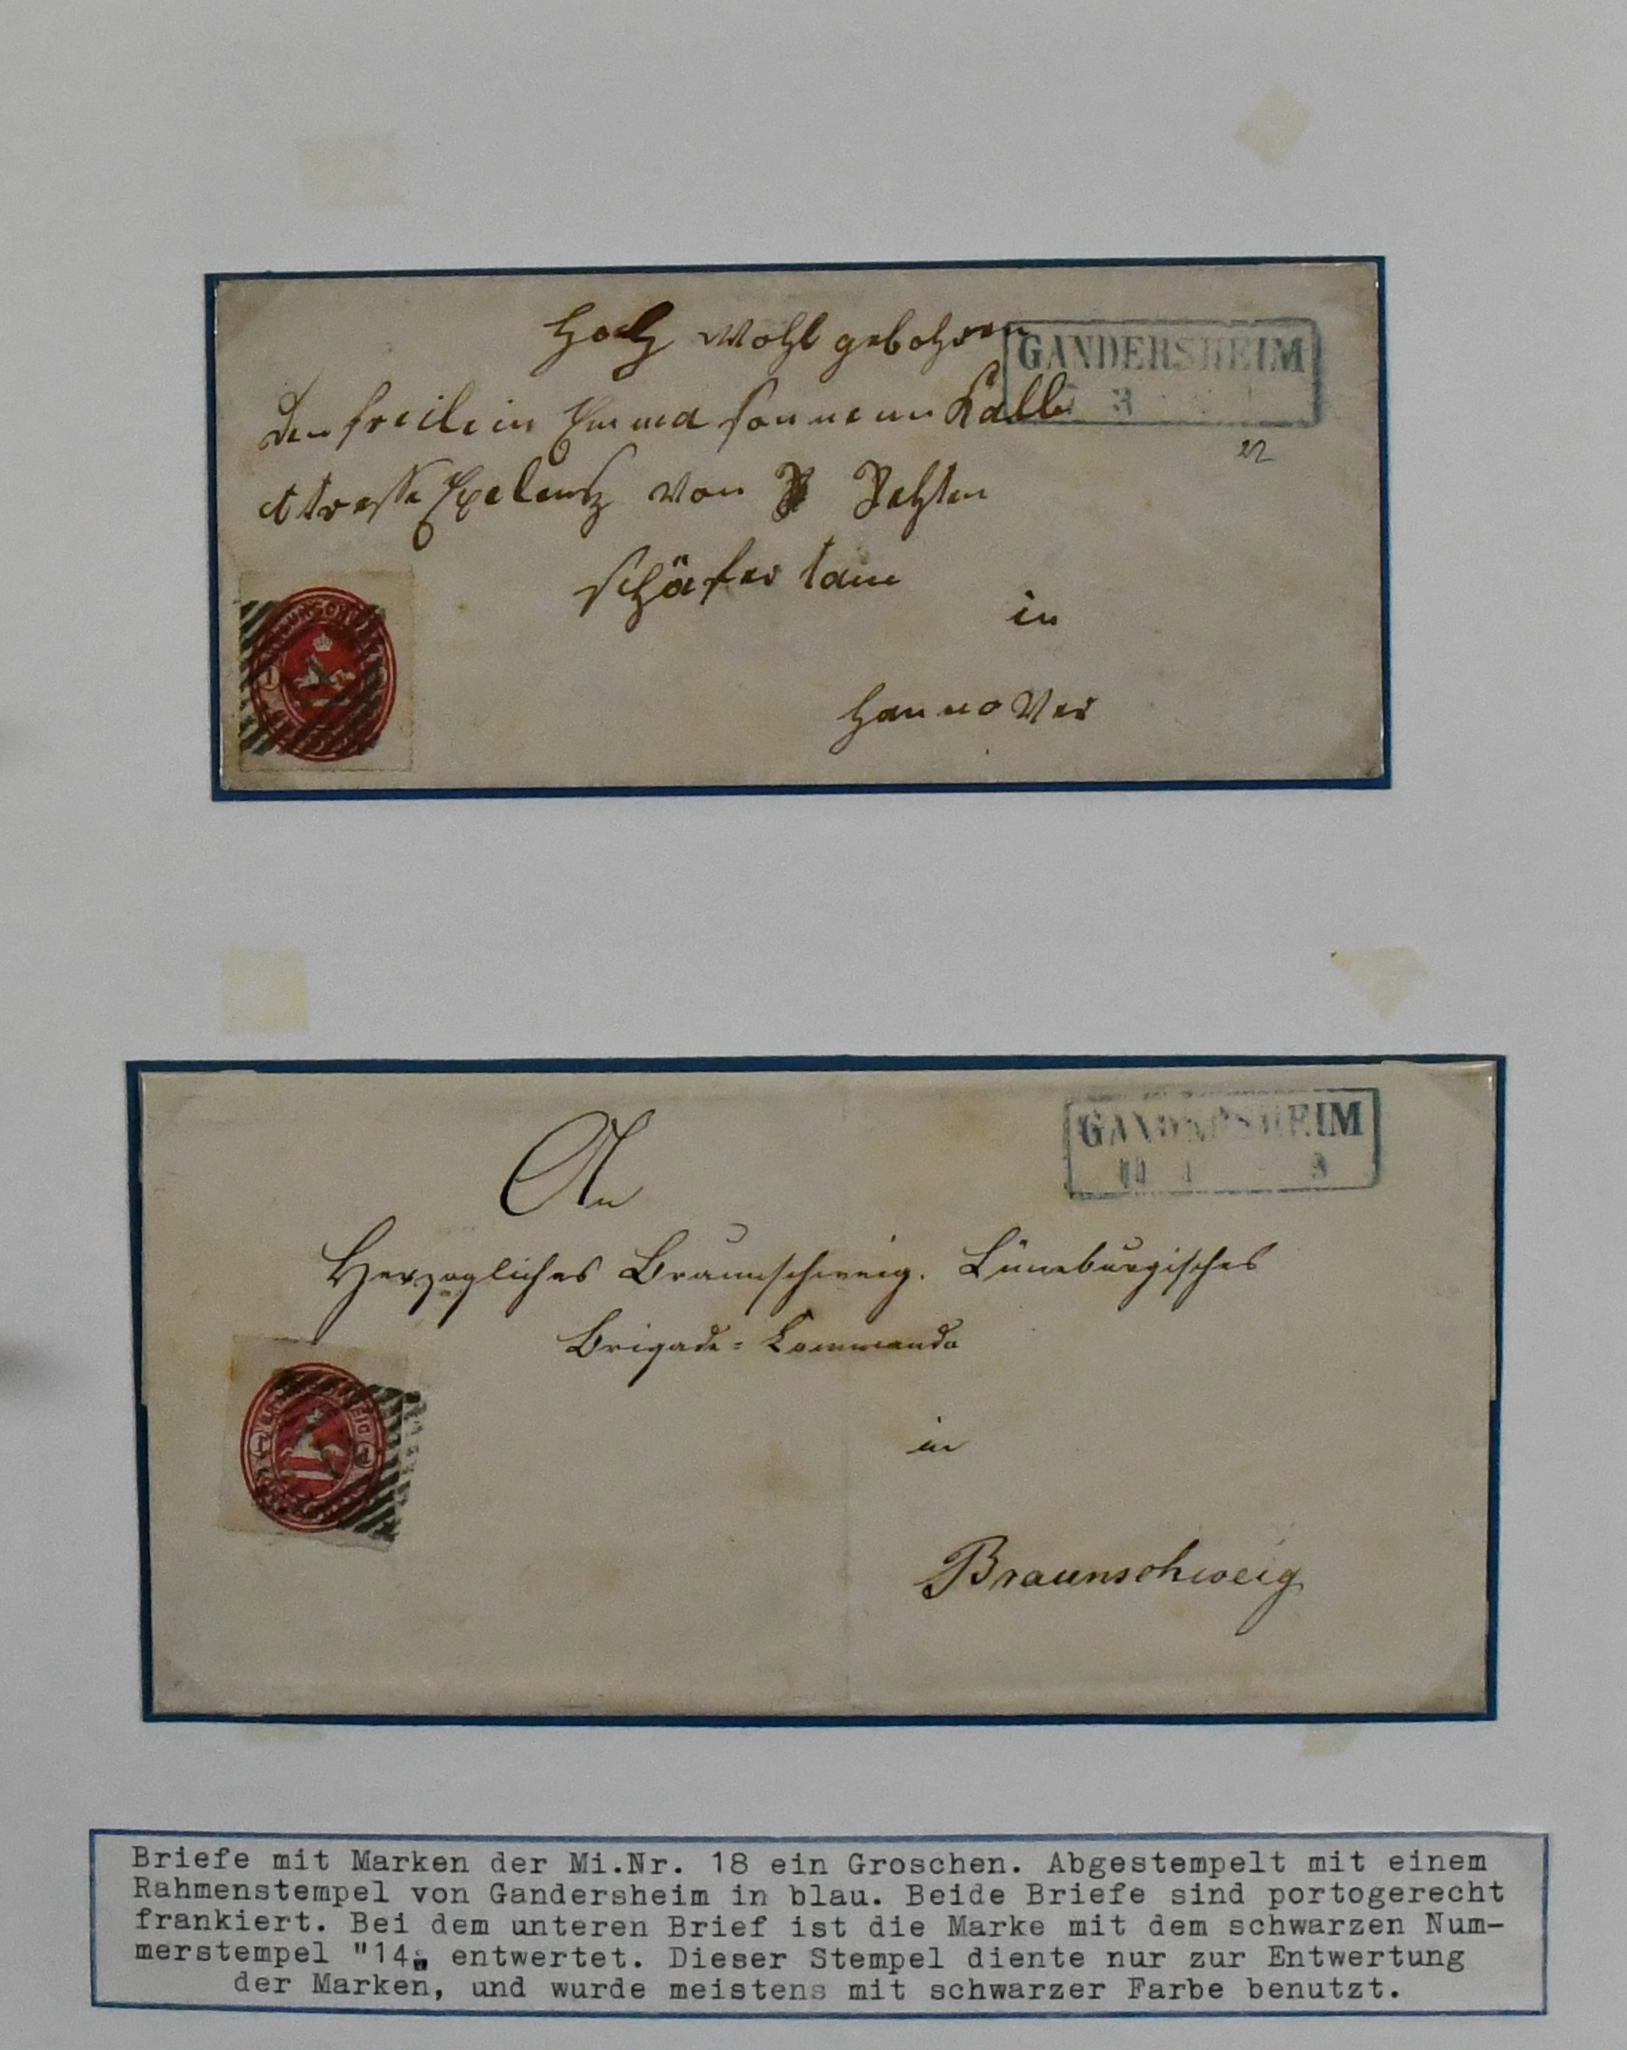 Hoch Wohl gebohren
GANDERSHEIM
3
den freilein Emma
Atresse Exelentz Von
22
schäfer
in
Hannover
GANDERSHEIM
An
Herzogliches Braunschweig. Lüneburgisches
Brigade=Commando
in
Braunschweig
Briefe mit Marken der Mi.Nr. 18 ein Groschen. Abgestempelt mit einem
Rahmenstempel von Gandersheim in blau. Beide Briefe sind portogerecht
frankiert. Bei dem unteren Brief ist die Marke mit dem schwarzen Num-
merstempel "14" entwertet. Dieser Stempel diente nur zur Entwertung
der Marken, und wurde meistens mit schwarzer Farbe benutzt.